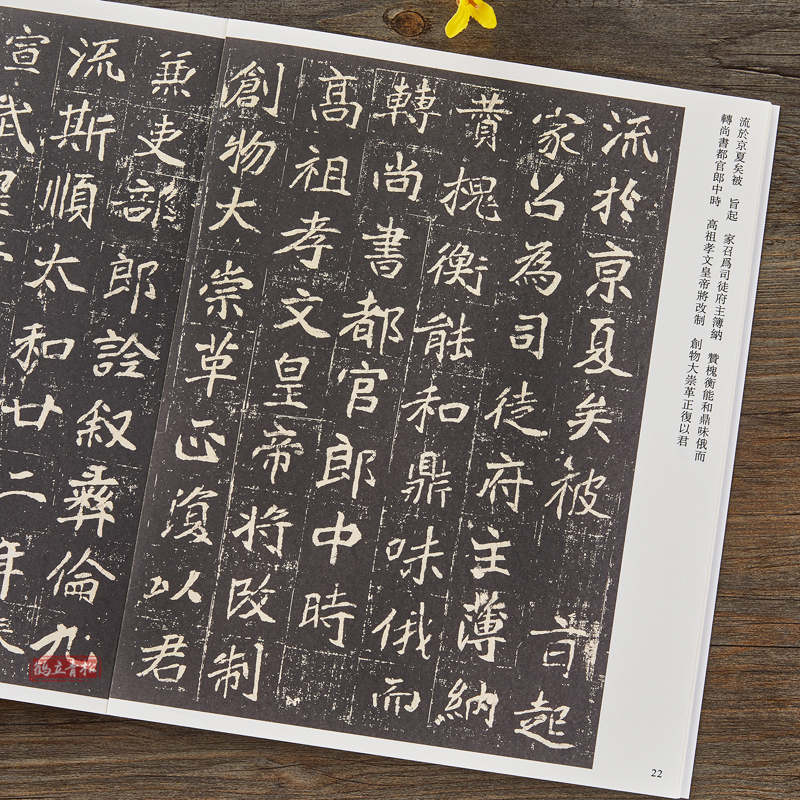 流於京夏矣被 旨起 家召爲司徒府主簿納 贊槐衡能和鼎味俄而
轉尚書都官郎中時 高祖孝文皇帝將改制 創物大崇革正復以君
流於京夏矣被 旨起
家召為司徒府主薄納
賛槐衡能和鼎味俄而
轉尚書都官郎中時
高祖孝文皇帝將改制
創物大崇革正復以君
兼吏部郎詮叙彝倫九
流斯順太和廿二年
宣武皇
22
鹤立青松